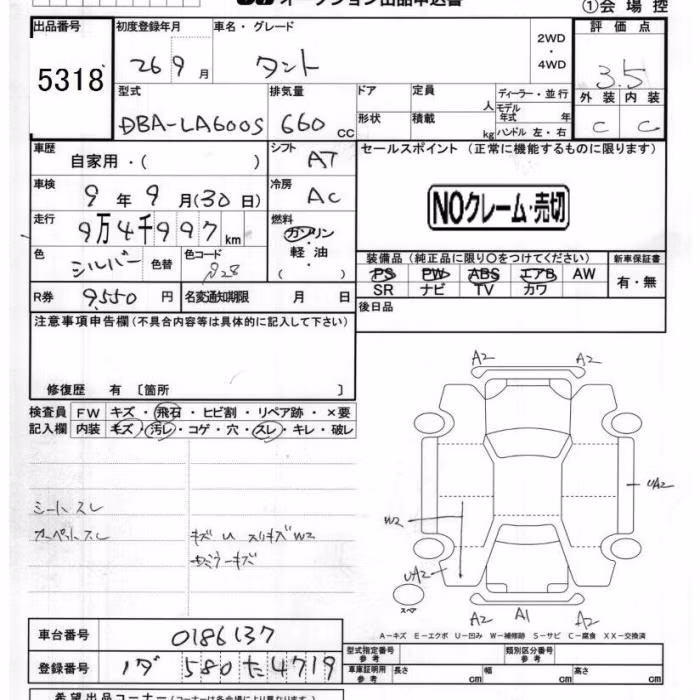 オークション出品申込書
①会場控
出品番号 初度登録年月 車名・グレード 評価点
5318 26 9月 タント 2WD・4WD 3.5
外装 内装
C C
型式 排気量 ドア 定員 人 ディーラー・並行
DBA-LA600S 660 CC 形状 積載 kg モデル年式 年 ハンドル 左・右
車歴 自家用・( ) シフト AT セールスポイント (正常に機能するものに限ります)
車検 9年9月(30日) 冷房 AC
NOクレーム・売切
走行 9万4千997km 燃料 ガソリン
軽油
( )
色 シルバー 色替 色コード S28
装備品 (純正品に限り○をつけてください) 新車保証書
PS PW ABS エアB AW 有・無
SR ナビ TV カワ
R券 9,550円 名変通知期限 月 日
後日品
注意事項申告欄(不具合内容等は具体的に記入して下さい)
修復歴 有〔箇所 〕
検査員 FW キズ・飛石・ヒビ割・リペア跡・×要
記入欄 内装 キズ・汚レ・コゲ・穴・スレ・キレ・破レ
シートスレ
カーペットスレ
キズ U スリキズ W2
A2 A2
UA2
W2
UA2
スペア
A2 A1 A2
A-キズ E-エクボ U-凹み W-補修跡 S-サビ C-腐食 XX-交換済
車台番号 0186137
型式指定番号 参考 類別区分番号 参考
登録番号 580 た 4719
車庫証明用 参考 長さ cm 幅 cm 高さ cm
希望出品コーナー(コーナーは各会場により異なります)